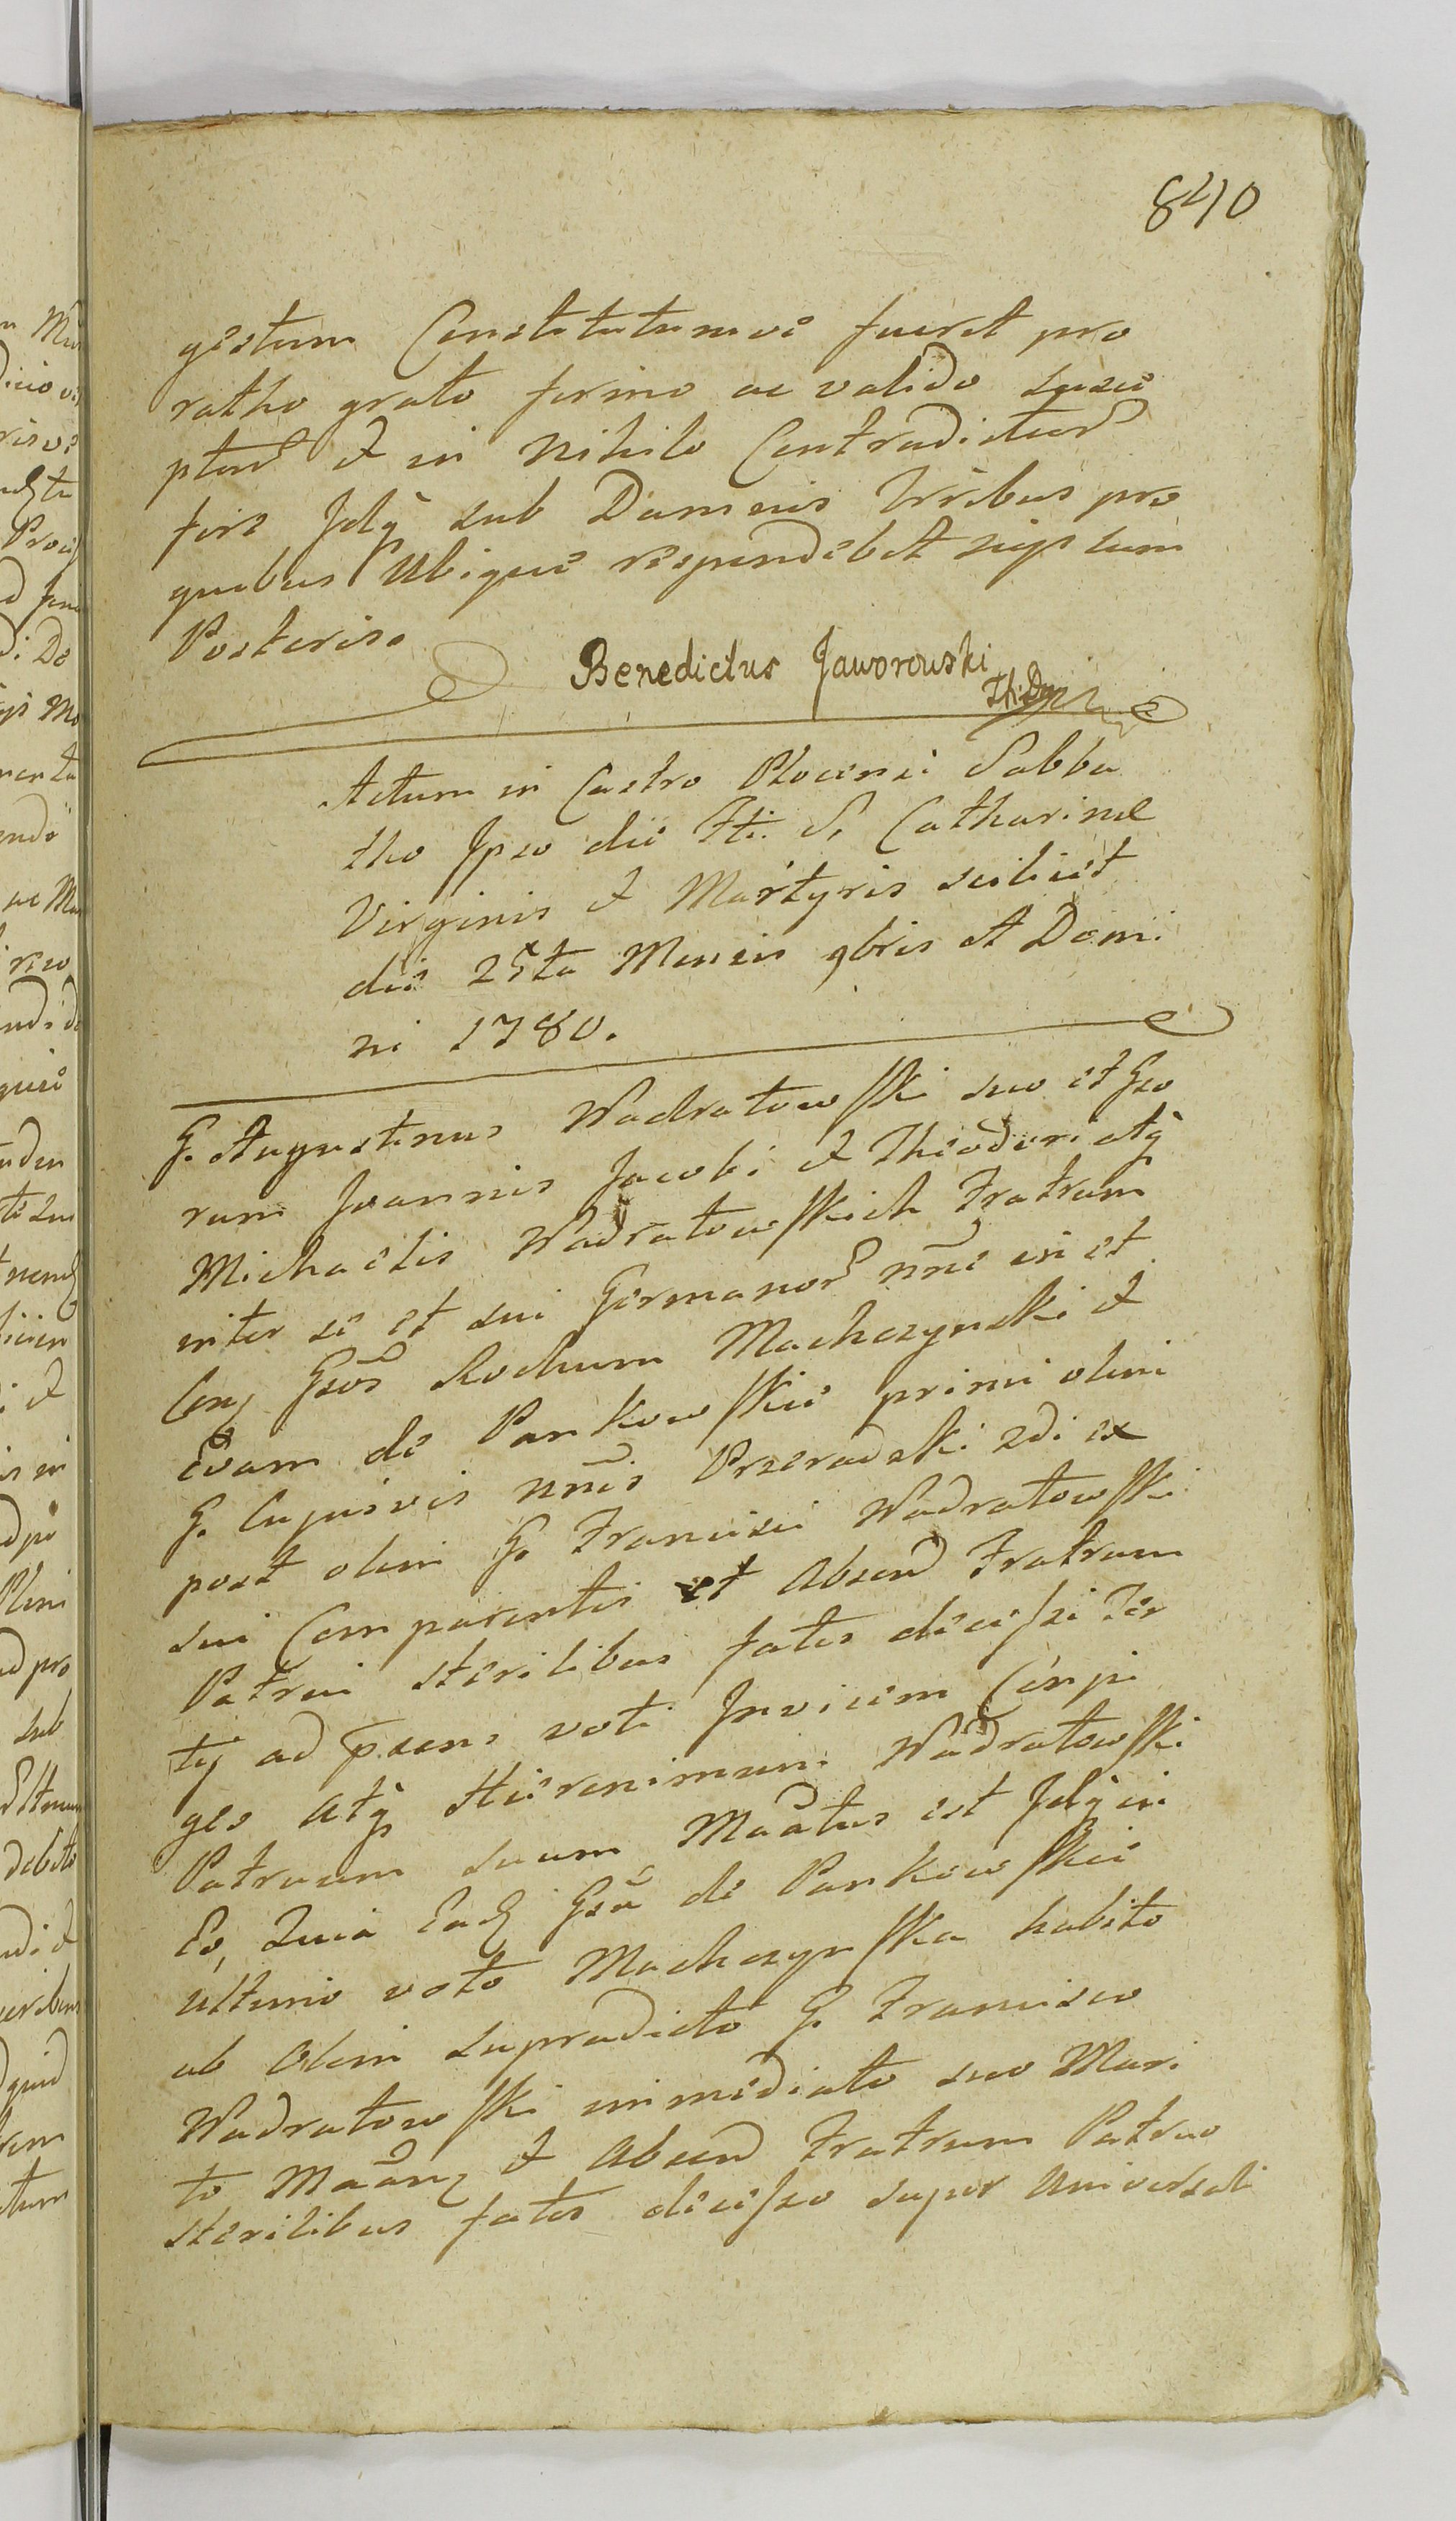 840
gestum Constitutumve fuerit pro
ratho grato firmo ac valido susce
ptur et in nihilo Contradictur
fire Idq sub Damnis Irribus pro
quibus Ubique respondebit suis cum
Posteris.
Benedictus Jaworowski
Actum in Castro Plocensi Sabba
tho Ipso die Fti S. Catharinæ
Virginis et Martyris scilicet
die 25ta Mensis 9bris A Domi
ni 1780.
G. Augustinus Wadratowski suo et Gso
rum Joannis Jacobi et Theodori atq
Michaelis Wadratowskich Fratrum
inter se et sui Germanor nne in et
Con Gsos Rochum Machczynski et
Evam de Pankowskie primi olim
G. Cujusvis nnis Przeradzki 2di ex
post olim G. Francisci Wadratowski
sui Comparentis et Absend Fratrum
Patrui sterilibus fatis decessi Ter
tij ad præsens voti Invicem Conju
ges atq Hieronimum Wadratowski
Patruum suum Maatus est Idq in
Eo, Quia Ead Gsa de Pankowskie
ultimo voto Machczynska habito
ab Olim supradicto G. Francisco
Wadratowski immediato suo Mari
to Maan et Absend Fratrum Patruo
sterilibus fatis decesso super Universali